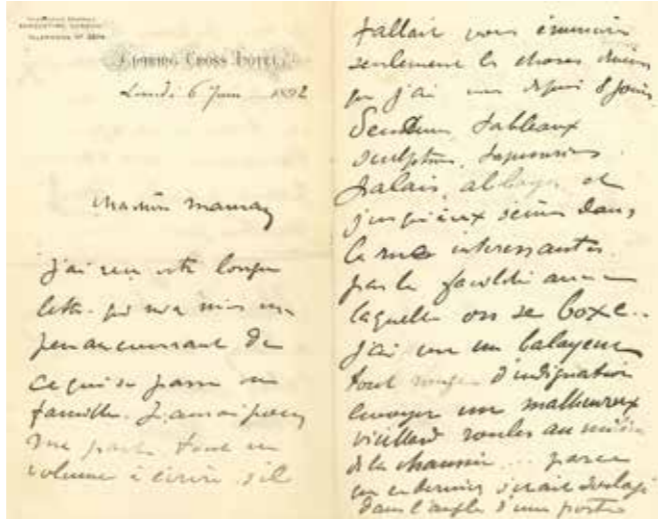 TELEPHONE Nº
CHARING CROSS HOTEL
Lundi 6 Juin 1892
Ma chère maman
j'ai reçu votre longue
lettre qui m'a mis un
peu au courant de
ce qui se passe en
famille. J'aurai pour
ma part tout un
volume à écrire s'il
fallait vous énumérer
seulement les choses
que j'ai vues depuis 8 jours
tableaux
sculptures, tapisseries
palais, abbaye et
jusqu'aux scènes dans
la rue intéressantes
par la facilité avec
laquelle on se boxe..
j'ai vu un balayeur
tout rouge d'indignation
envoyer un malheureux
vieillard rouler au milieu
de la chaussée... parce
que ce dernier s'était soulagé
dans l'angle d'une porte